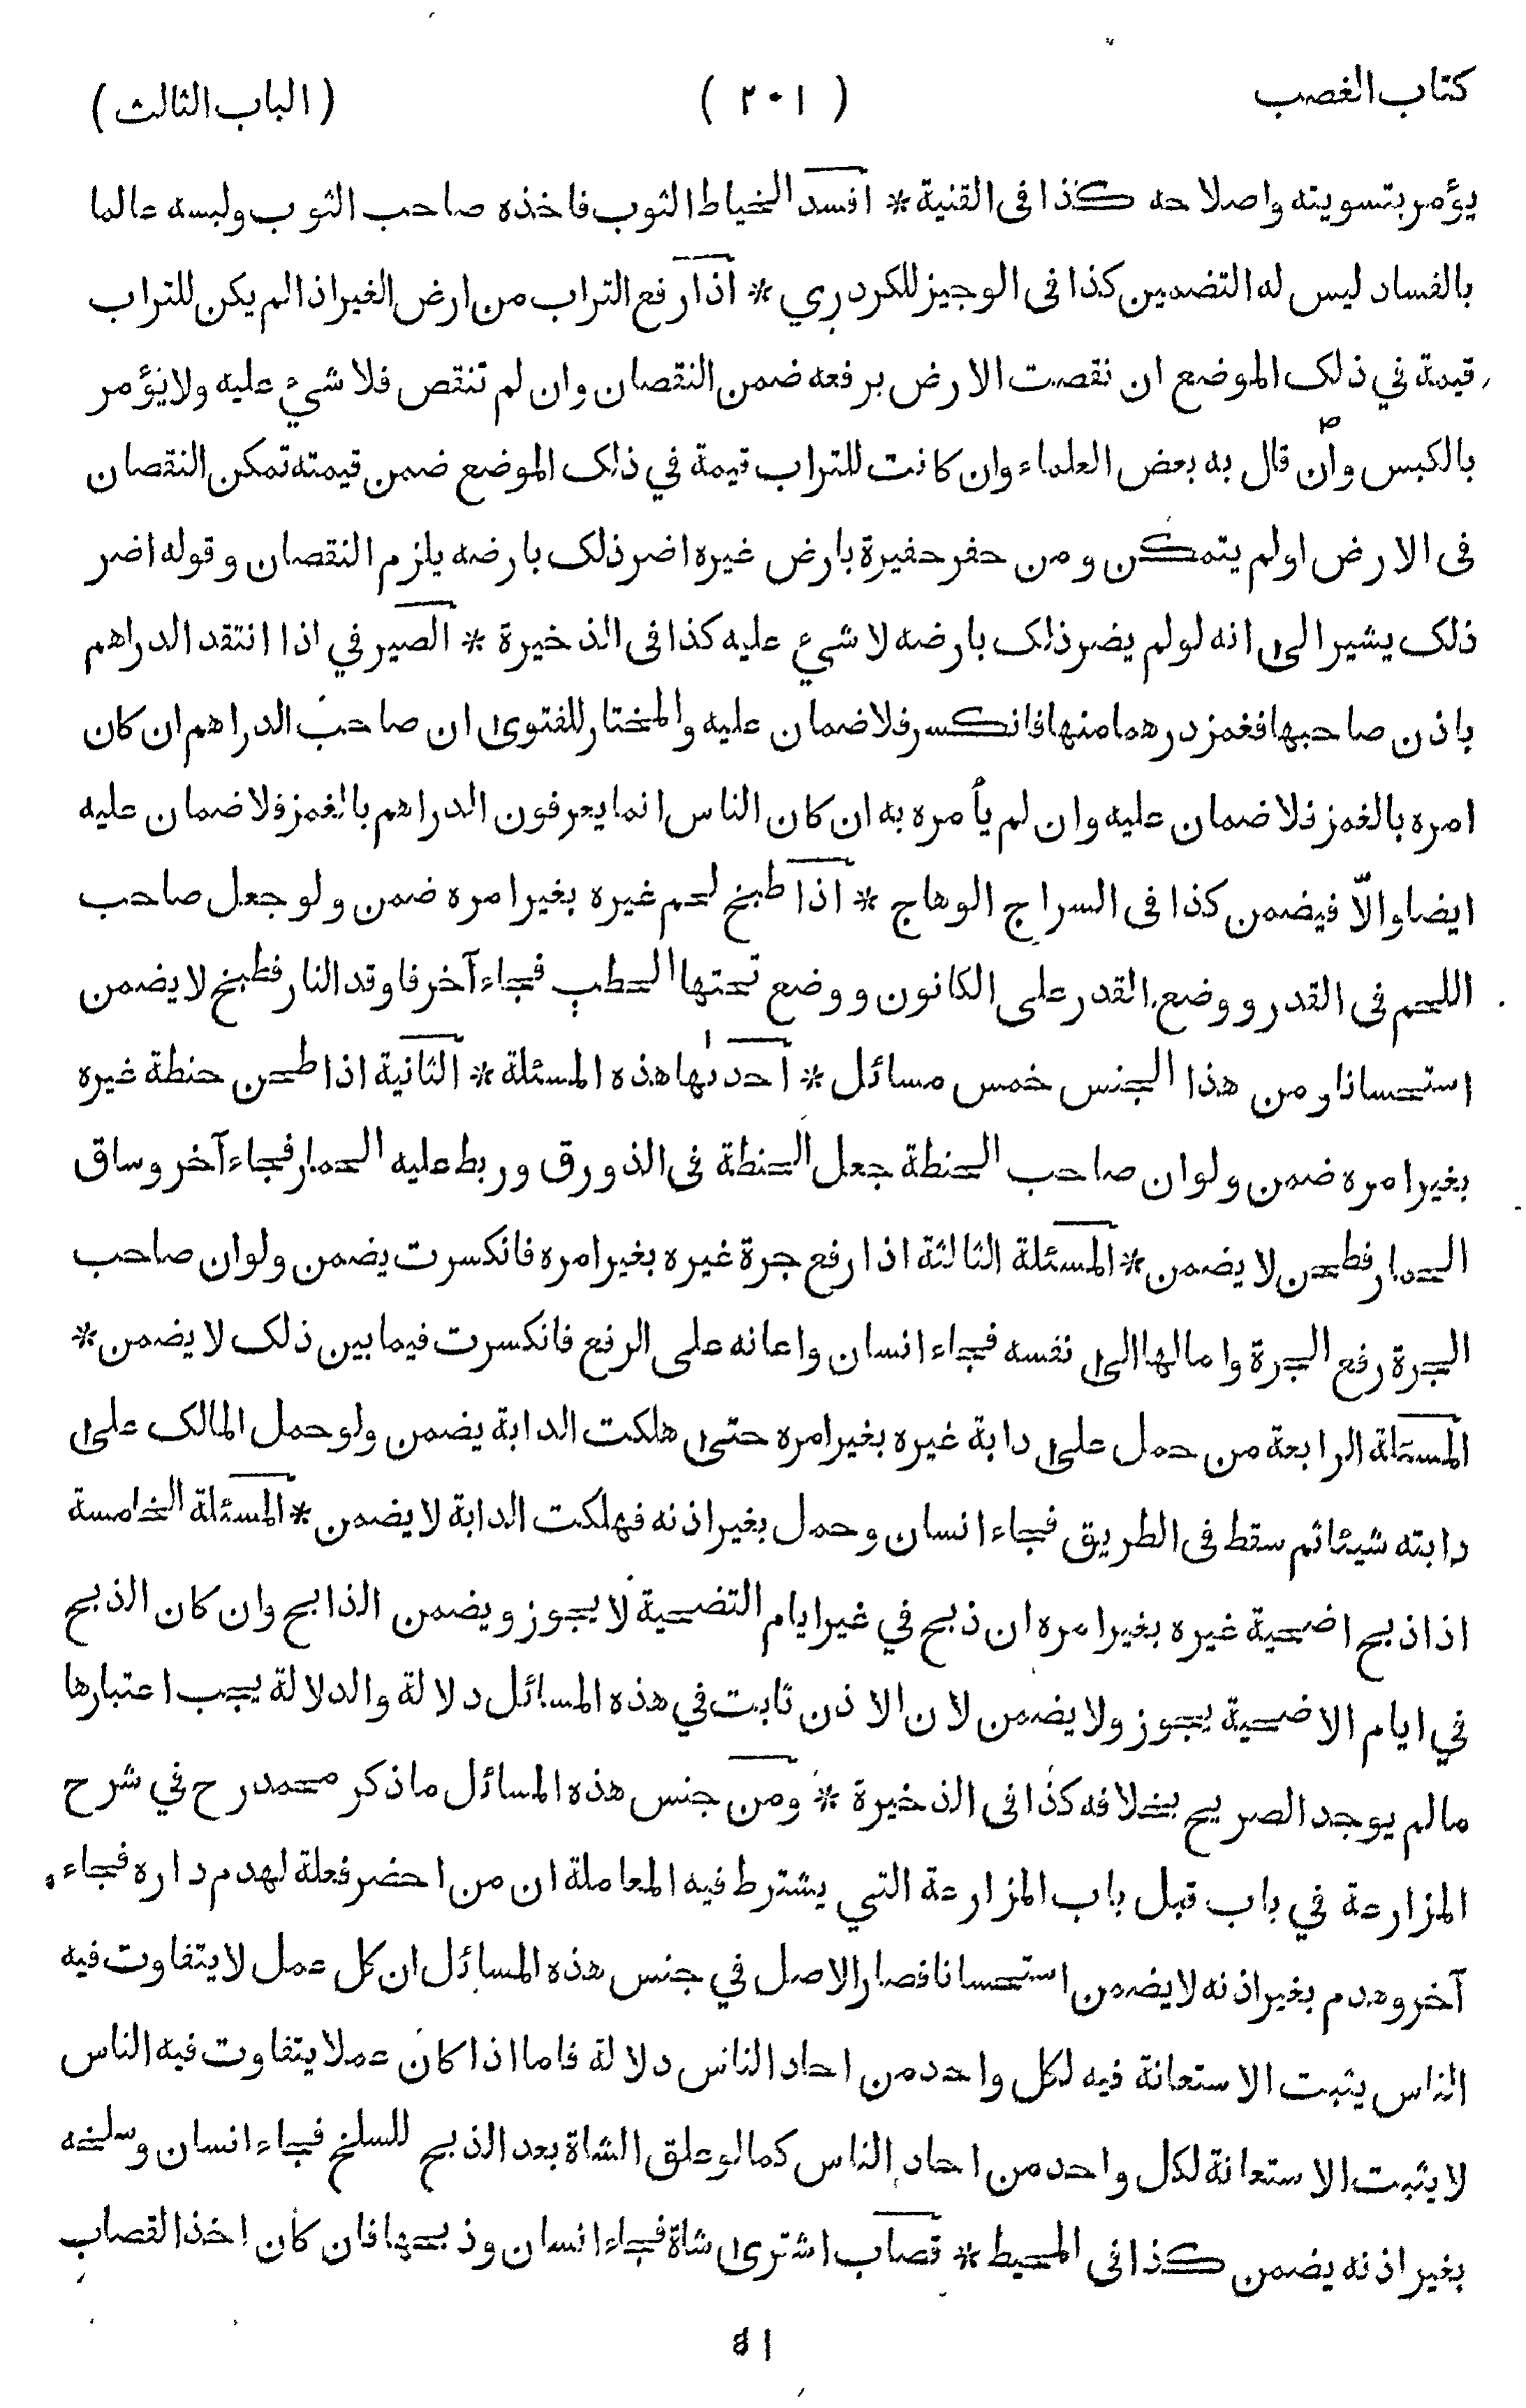 كتاب الغصب (٢٠١) (الباب الثالث)
يؤمر بتسويته واصلاحه كذا فى القنية * افسد الخياط الثوب فاخذه صاحب الثوب ولبسه عالما
بالفساد ليس له التضمين كذا فى الوجيز للكردري * اذا رفع التراب من ارض الغير اذا لم يكن للتراب
قيمة في ذلك الموضع ان نقصت الارض برفعه ضمن النقصان وان لم تنقص فلا شيء عليه ولا يؤمر
بالكبس وان قال به بعض العلماء وان كانت للتراب قيمة في ذلك الموضع ضمن قيمته تمكن النقصان
فى الارض او لم يتمكن ومن حفر حفيرة بارض غيره اضر ذلك بارضه يلزم النقصان وقوله اضر
ذلك يشير الى انه لو لم يضر ذلك بارضه لا شيء عليه كذا فى الذخيرة * الصيرفي اذا انتقد الدراهم
باذن صاحبها فغمز درهما منها فانكسر فلا ضمان عليه والمختار للفتوى ان صاحب الدراهم ان كان
امره بالغمز فلا ضمان عليه وان لم يأمره به ان كان الناس انما يعرفون الدراهم بالغمز فلا ضمان عليه
ايضا والّا فيضمن كذا فى السراج الوهاج * اذا طبخ لحم غيره بغير امره ضمن ولو جعل صاحب
اللحم فى القدر ووضع القدر على الكانون ووضع تحتها الحطب فجاء آخر فاوقد النار فطبخ لا يضمن
استحسانا ومن هذا الجنس خمس مسائل * احدٰىها هذه المسئلة * الثانية اذا طحن حنطة غيره
بغير امره ضمن ولو ان صاحب الحنطة جعل الحنطة فى الذورق وربط عليه الحمار فجاء آخر وساق
الحمار فطحن لا يضمن * المسئلة الثالثة اذا رفع جرة غيره بغير امره فانكسرت يضمن ولو ان صاحب
الجرة رفع الجرة وامالها الى نفسه فجاء انسان واعانه على الرفع فانكسرت فيما بين ذلك لا يضمن *
المسئلة الرابعة من حمل على دابة غيره بغير امره حتى هلكت الدابة يضمن ولو حمل المالك على
دابته شيئا ثم سقط فى الطريق فجاء انسان وحمل بغير اذنه فهلكت الدابة لا يضمن * المسئلة الخامسة
اذا ذبح اضحية غيره بغير امره ان ذبح في غير ايام التضحية لا يجوز ويضمن الذابح وان كان الذبح
في ايام الاضحية يجوز ولا يضمن لان الاذن ثابت في هذه المسائل دلالة والدلالة يجب اعتبارها
مالم يوجد الصريح بخلافه كذا فى الذخيرة * ومن جنس هذه المسائل ما ذكر محمد رح في شرح
المزارعة في باب قبل باب المزارعة التي يشترط فيه المعاملة ان من احضر فعلة لهدم داره فجاء
آخر وهدم بغير اذنه لا يضمن استحسانا فصار الاصل في جنس هذه المسائل ان كل عمل لا يتفاوت فيه
الناس يثبت الاستعانة فيه لكل واحد من احاد الناس دلالة فاما اذا كان عملا يتفاوت فيه الناس
لا يثبت الاستعانة لكل واحد من احاد الناس كما لو علق الشاة بعد الذبح للسلخ فجاء انسان وسلخه
بغير اذنه يضمن كذا فى المحيط * قصاب اشترى شاة فجاء انسان وذبحها فان كان اخذ القصاب